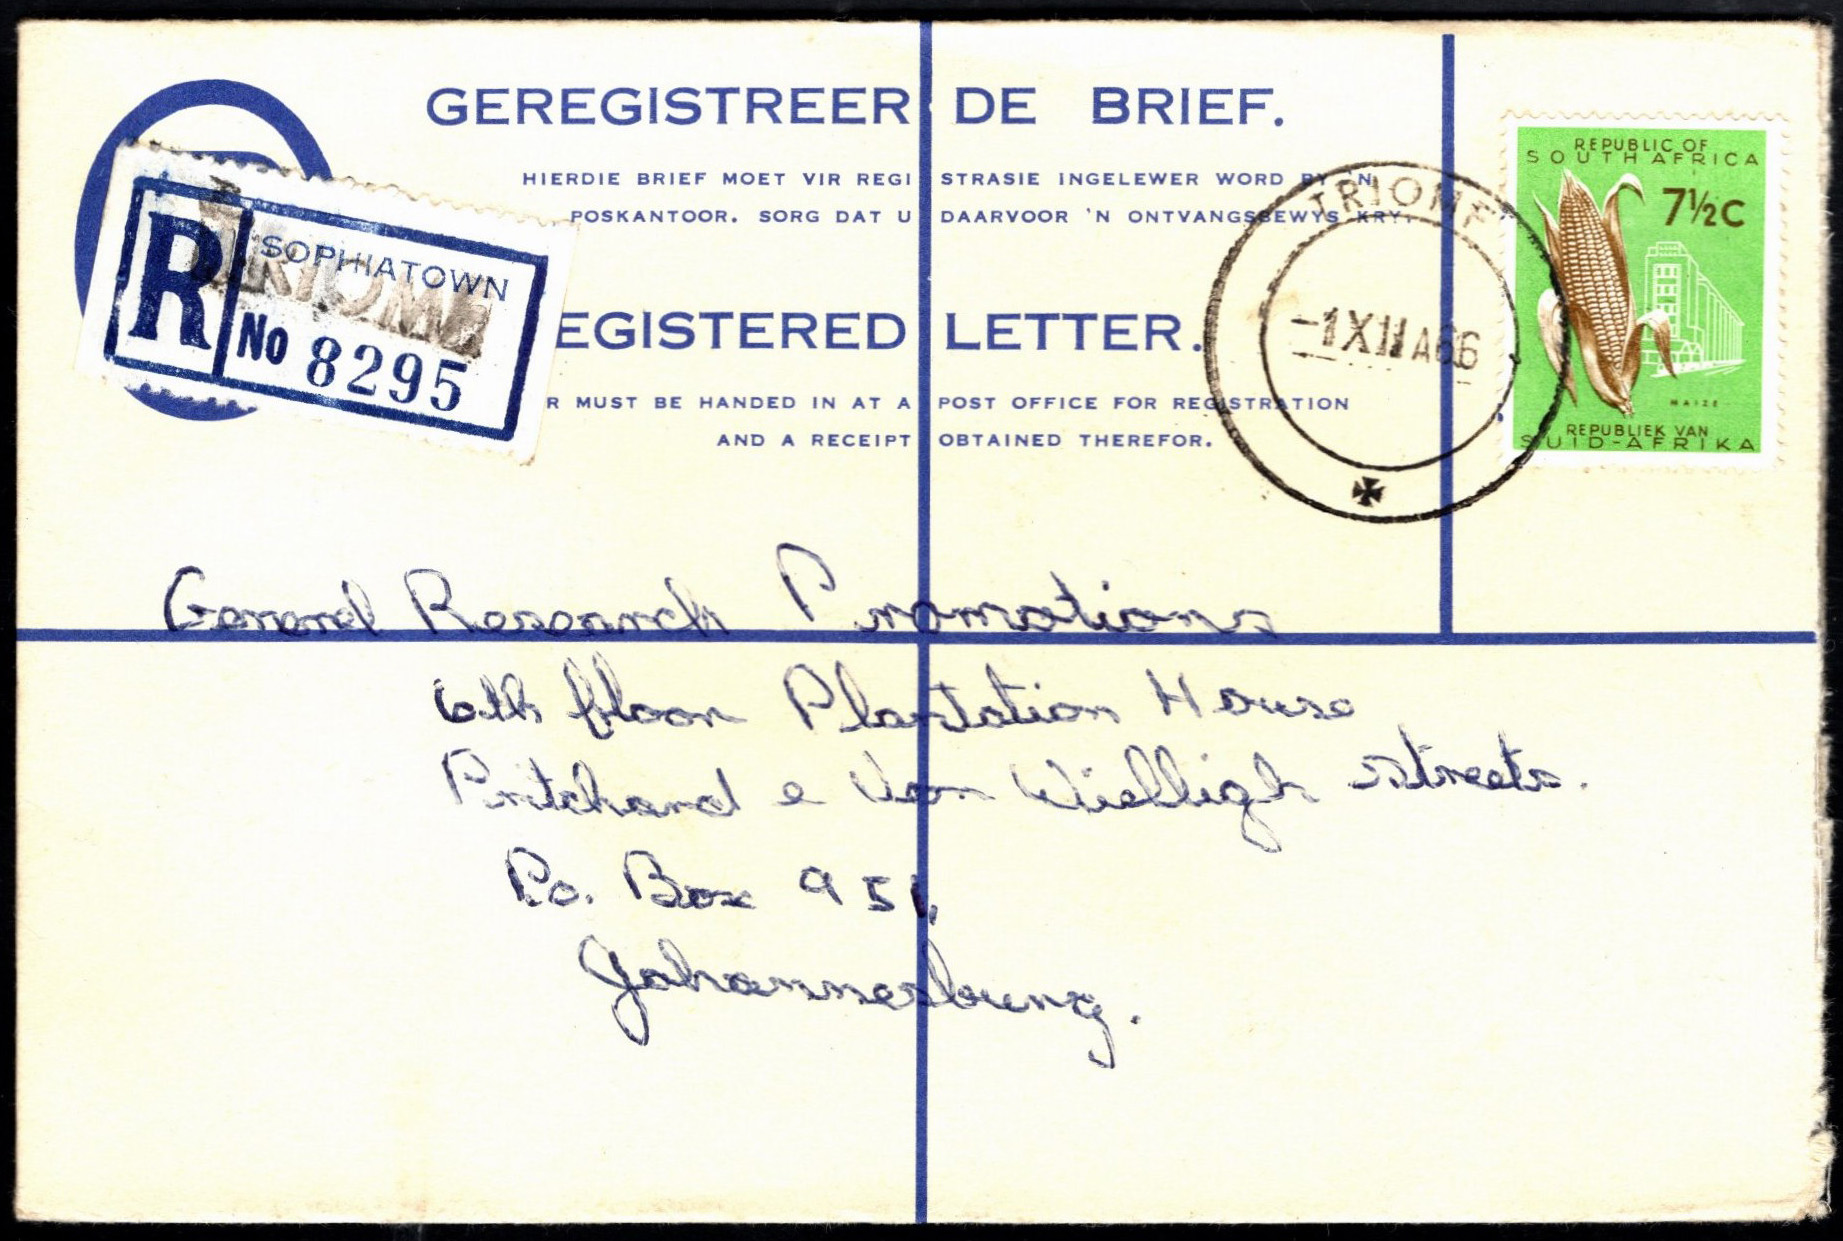 GEREGISTREERDE BRIEF.
HIERDIE BRIEF MOET VIR REGISTRASIE INGELEWER WORD BY 'N
POSKANTOOR. SORG DAT U DAARVOOR 'N ONTVANGSBEWYS KRY.
R SOPHIATOWN
TRIOMF
No 8295
EGISTERED LETTER.
R MUST BE HANDED IN AT A POST OFFICE FOR REGISTRATION
AND A RECEIPT OBTAINED THEREFOR.
TRIOMF
-1 XII A66
REPUBLIC OF
SOUTH AFRICA
7½C
MAIZE
REPUBLIEK VAN
SUID-AFRIKA
General Research Promotions
6th floor Plantation House
Pritchard e Von Wielligh streets.
Po. Box 951,
Johannesburg.